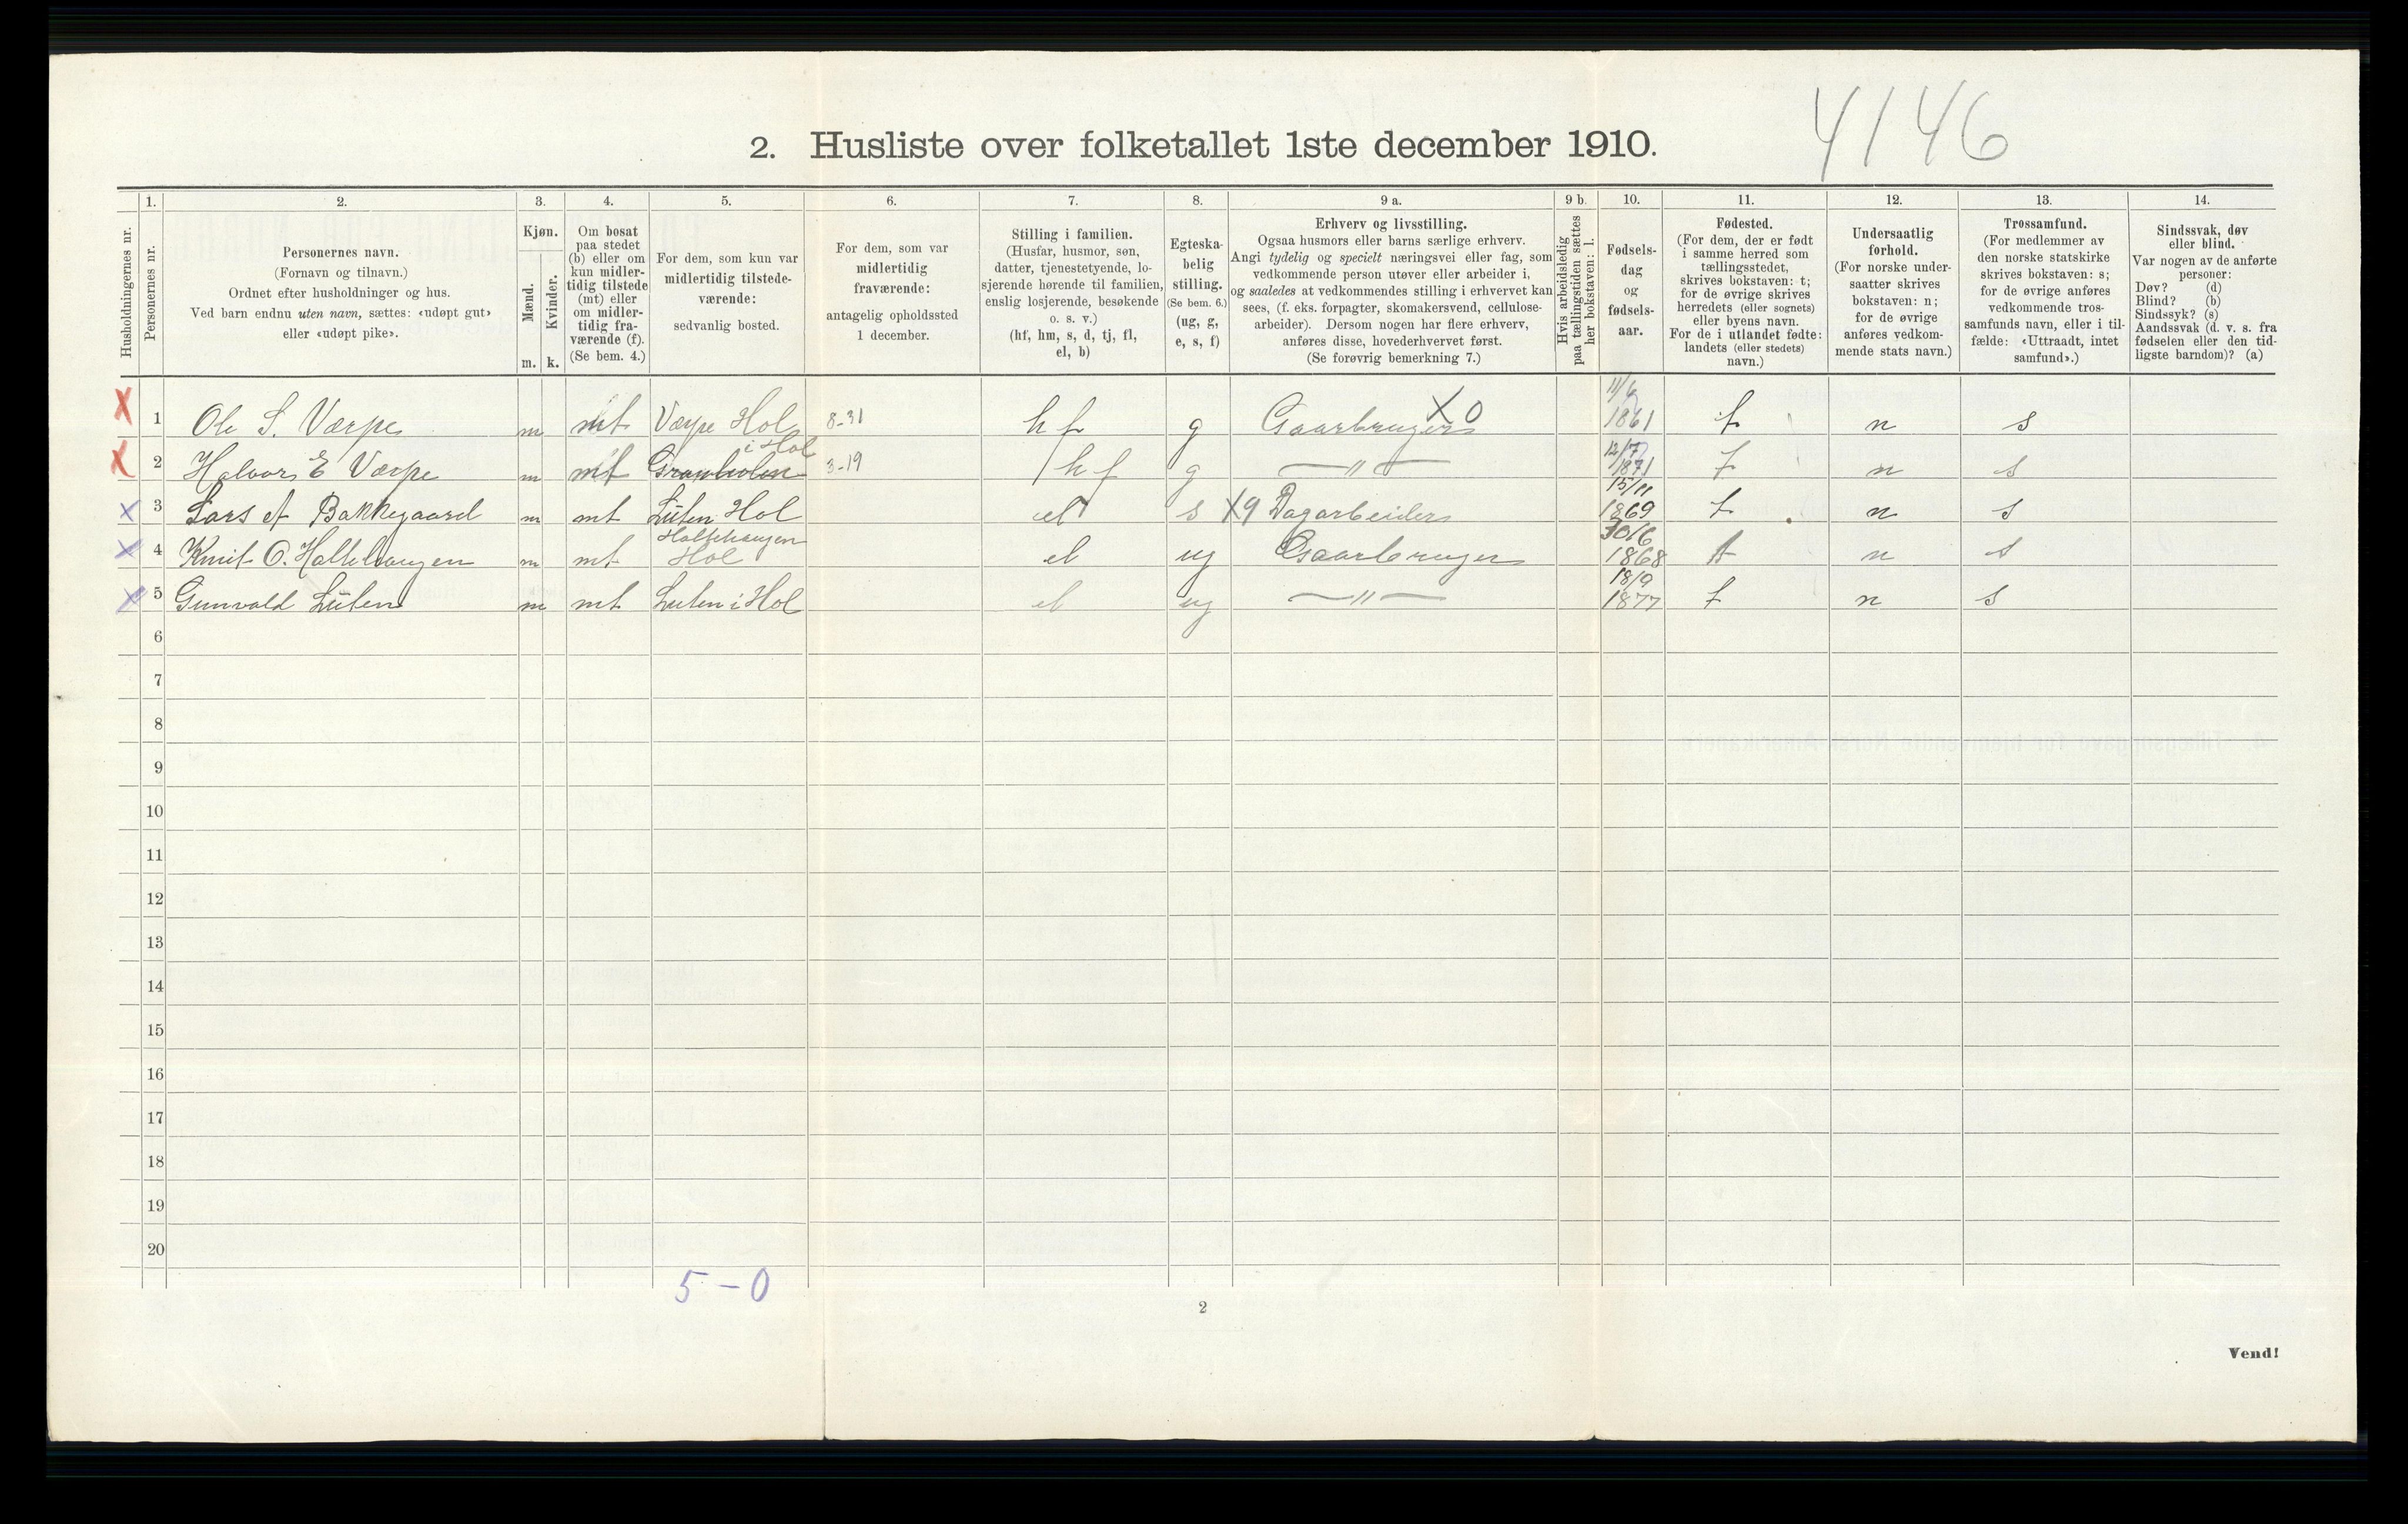 4146
2. Husliste over folketallet 1ste december 1910.
1. 2. 3. 4. 5. 6. 7. 8. 9 a. 9 b. 10. 11. 12. 13. 14.
Husholdningernes nr.
Personernes nr.
Personernes navn.
(Fornavn og tilnavn.)
Ordnet efter husholdninger og hus.
Ved barn endnu uten navn, sættes: «udøpt gut»
eller «udøpt pike».
Kjøn.
Mænd.
Kvinder.
m. k.
Om bosat
paa stedet
(b) eller om
kun midler-
tidig tilstede
(mt) eller
om midler-
tidig fra-
værende (f).
(Se bem. 4.)
For dem, som kun var
midlertidig tilstede-
værende:
sedvanlig bosted.
For dem, som var
midlertidig
fraværende:
antagelig opholdssted
1 december.
Stilling i familien.
(Husfar, husmor, søn,
datter, tjenestetyende, lo-
sjerende hørende til familien,
enslig losjerende, besøkende
o. s. v.)
(hf, hm, s, d, tj, fl,
el, b)
Egteska-
belig
stilling.
(Se bem. 6.)
(ug, g,
e, s, f)
Erhverv og livsstilling.
Ogsaa husmors eller barns særlige erhverv.
Angi tydelig og specielt næringsvei eller fag, som
vedkommende person utøver eller arbeider i,
og saaledes at vedkommendes stilling i erhvervet kan
sees, (f. eks. forpagter, skomakersvend, cellulose-
arbeider). Dersom nogen har flere erhverv,
anføres disse, hovederhvervet først.
(Se forøvrig bemerkning 7.)
Hvis arbeidsledig
paa tællingstiden sættes
her bokstaven: l.
Fødsels-
dag
og
fødsels-
aar.
Fødested.
(For dem, der er født
i samme herred som
tællingsstedet,
skrives bokstaven: t;
for de øvrige skrives
herredets (eller sognets)
eller byens navn.
For de i utlandet fødte:
landets (eller stedets)
navn.)
Undersaatlig
forhold.
(For norske under-
saatter skrives
bokstaven: n;
for de øvrige
anføres vedkom-
mende stats navn.)
Trossamfund.
(For medlemmer av
den norske statskirke
skrives bokstaven: s;
for de øvrige anføres
vedkommende tros-
samfunds navn, eller i til-
fælde: «Uttraadt, intet
samfund».)
Sindssvak, døv
eller blind.
Var nogen av de anførte
personer:
Døv? (d)
Blind? (b)
Sindssyk? (s)
Aandssvak (d. v. s. fra
fødselen eller den tid-
ligste barndom)? (a)
X 1 Ole S. Værpe m mt Værpe Hol 8-31 hf g Gaarbruger X 0 11/6 1861 t n s
X 2 Halvor E Værpe m mt i Hol 3-19 hf g —"— 12/7 1871 t n s
X 3 Lars A Bakkegaard m mt Luten Hol el s X9 Dagarbeider 15/11 1869 t n s
X 4 Knut O. Haltehaugen m mt Haltehaugen Hol el ug Gaarbruger 30/6 1868 t n s
X 5 Gunvald Luten m mt Luten i Hol el ug —"— 18/9 1877 t n s
6
7
8
9
10
11
12
13
14
15
16
17
18
19
20
5 – 0
2
Vend!